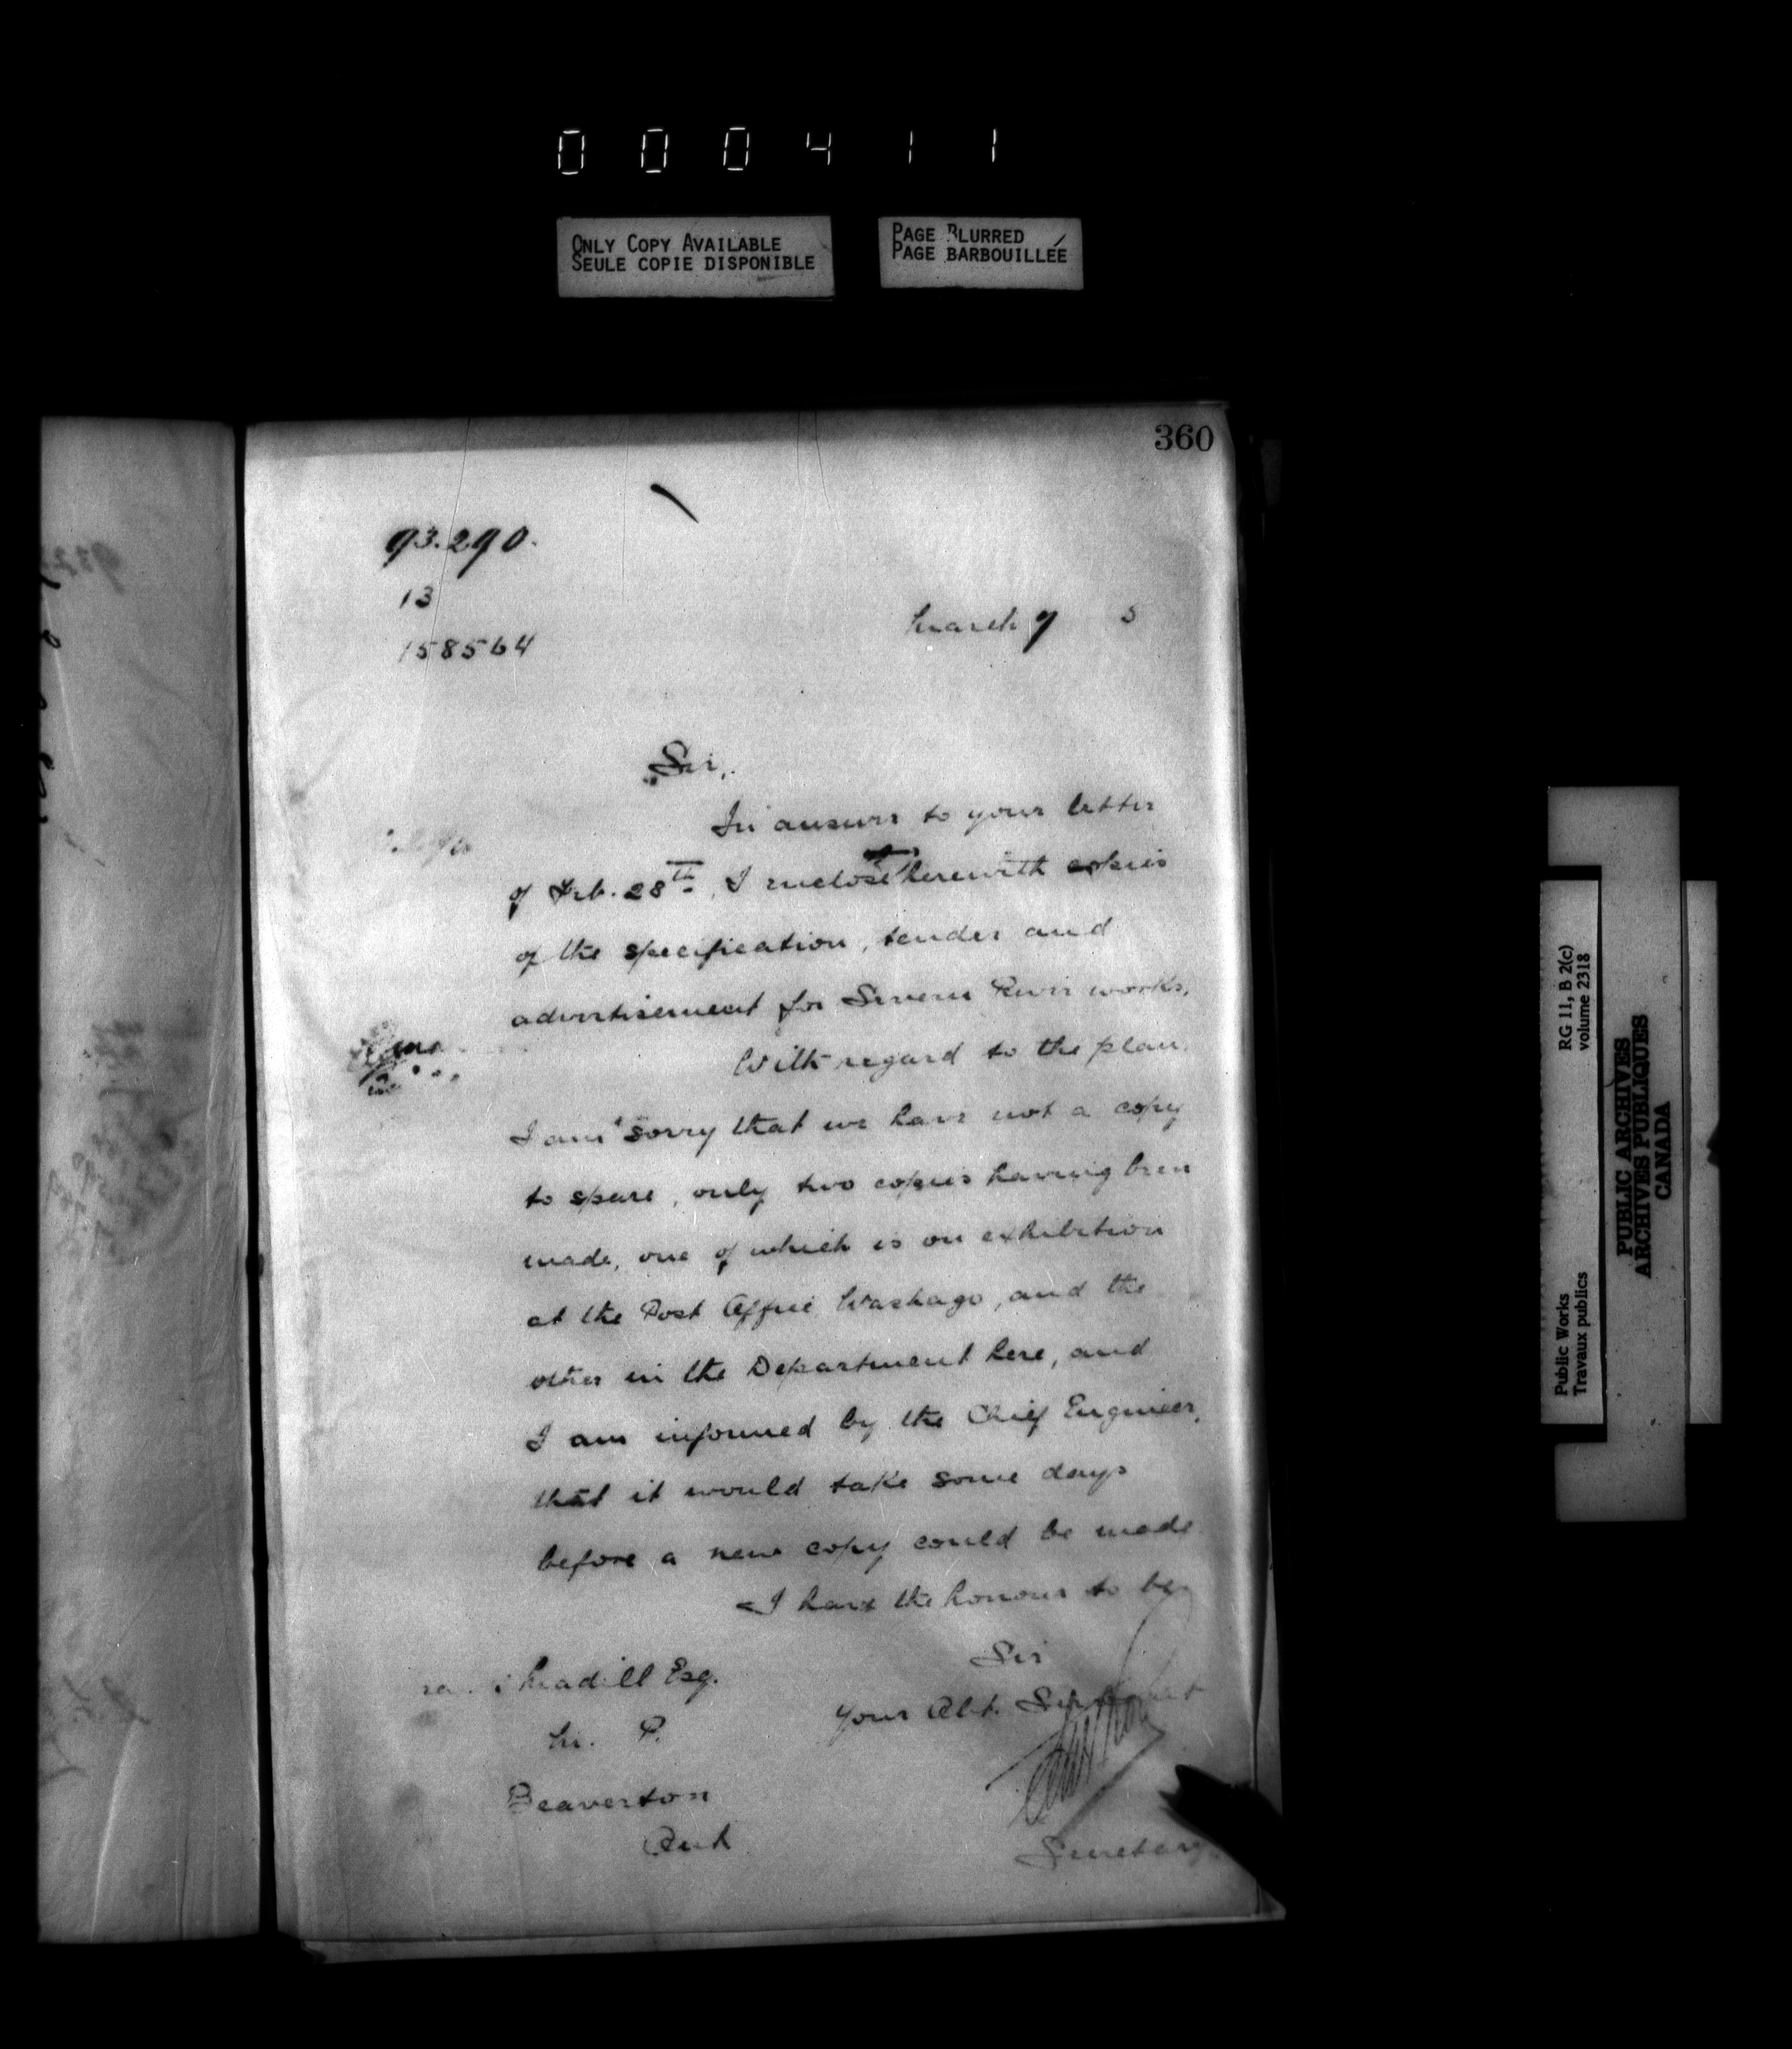 000411
ONLY COPY AVAILABLE
SEULE COPIE DISPONIBLE
PAGE BLURRED
PAGE BARBOUILLÉE
360
93.290.
13
158564
March 7 5
Sir,
In answer to your letter
of Feb. 28th, I enclose herewith copies
of the specification, tender and
advertisement for Severn River works.
With regard to the plan,
I am sorry that we have not a copy
to spare, only two copies having been
made, one of which is on exhibition
at the Post Office Washago, and the
other in the Department here, and
I am informed by the Chief Engineer,
that it would take some days
before a new copy could be made
I have the honour to be
Sir
Your Obt. Servant
Secretary
Esq.
M. P.
Beaverton
Ont
Public Works
Travaux publics
RG 11, B 2(c)
volume 2318
PUBLIC ARCHIVES
ARCHIVES PUBLIQUES
CANADA